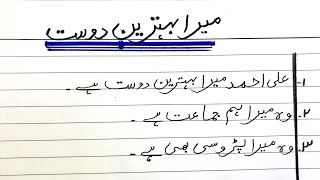 میرا بہترین دوست
۱۔ علی احمد میرا بہترین دوست ہے۔
۲۔ وہ میرا ہم جماعت ہے۔
۳۔ وہ میرا پڑوسی بھی ہے۔